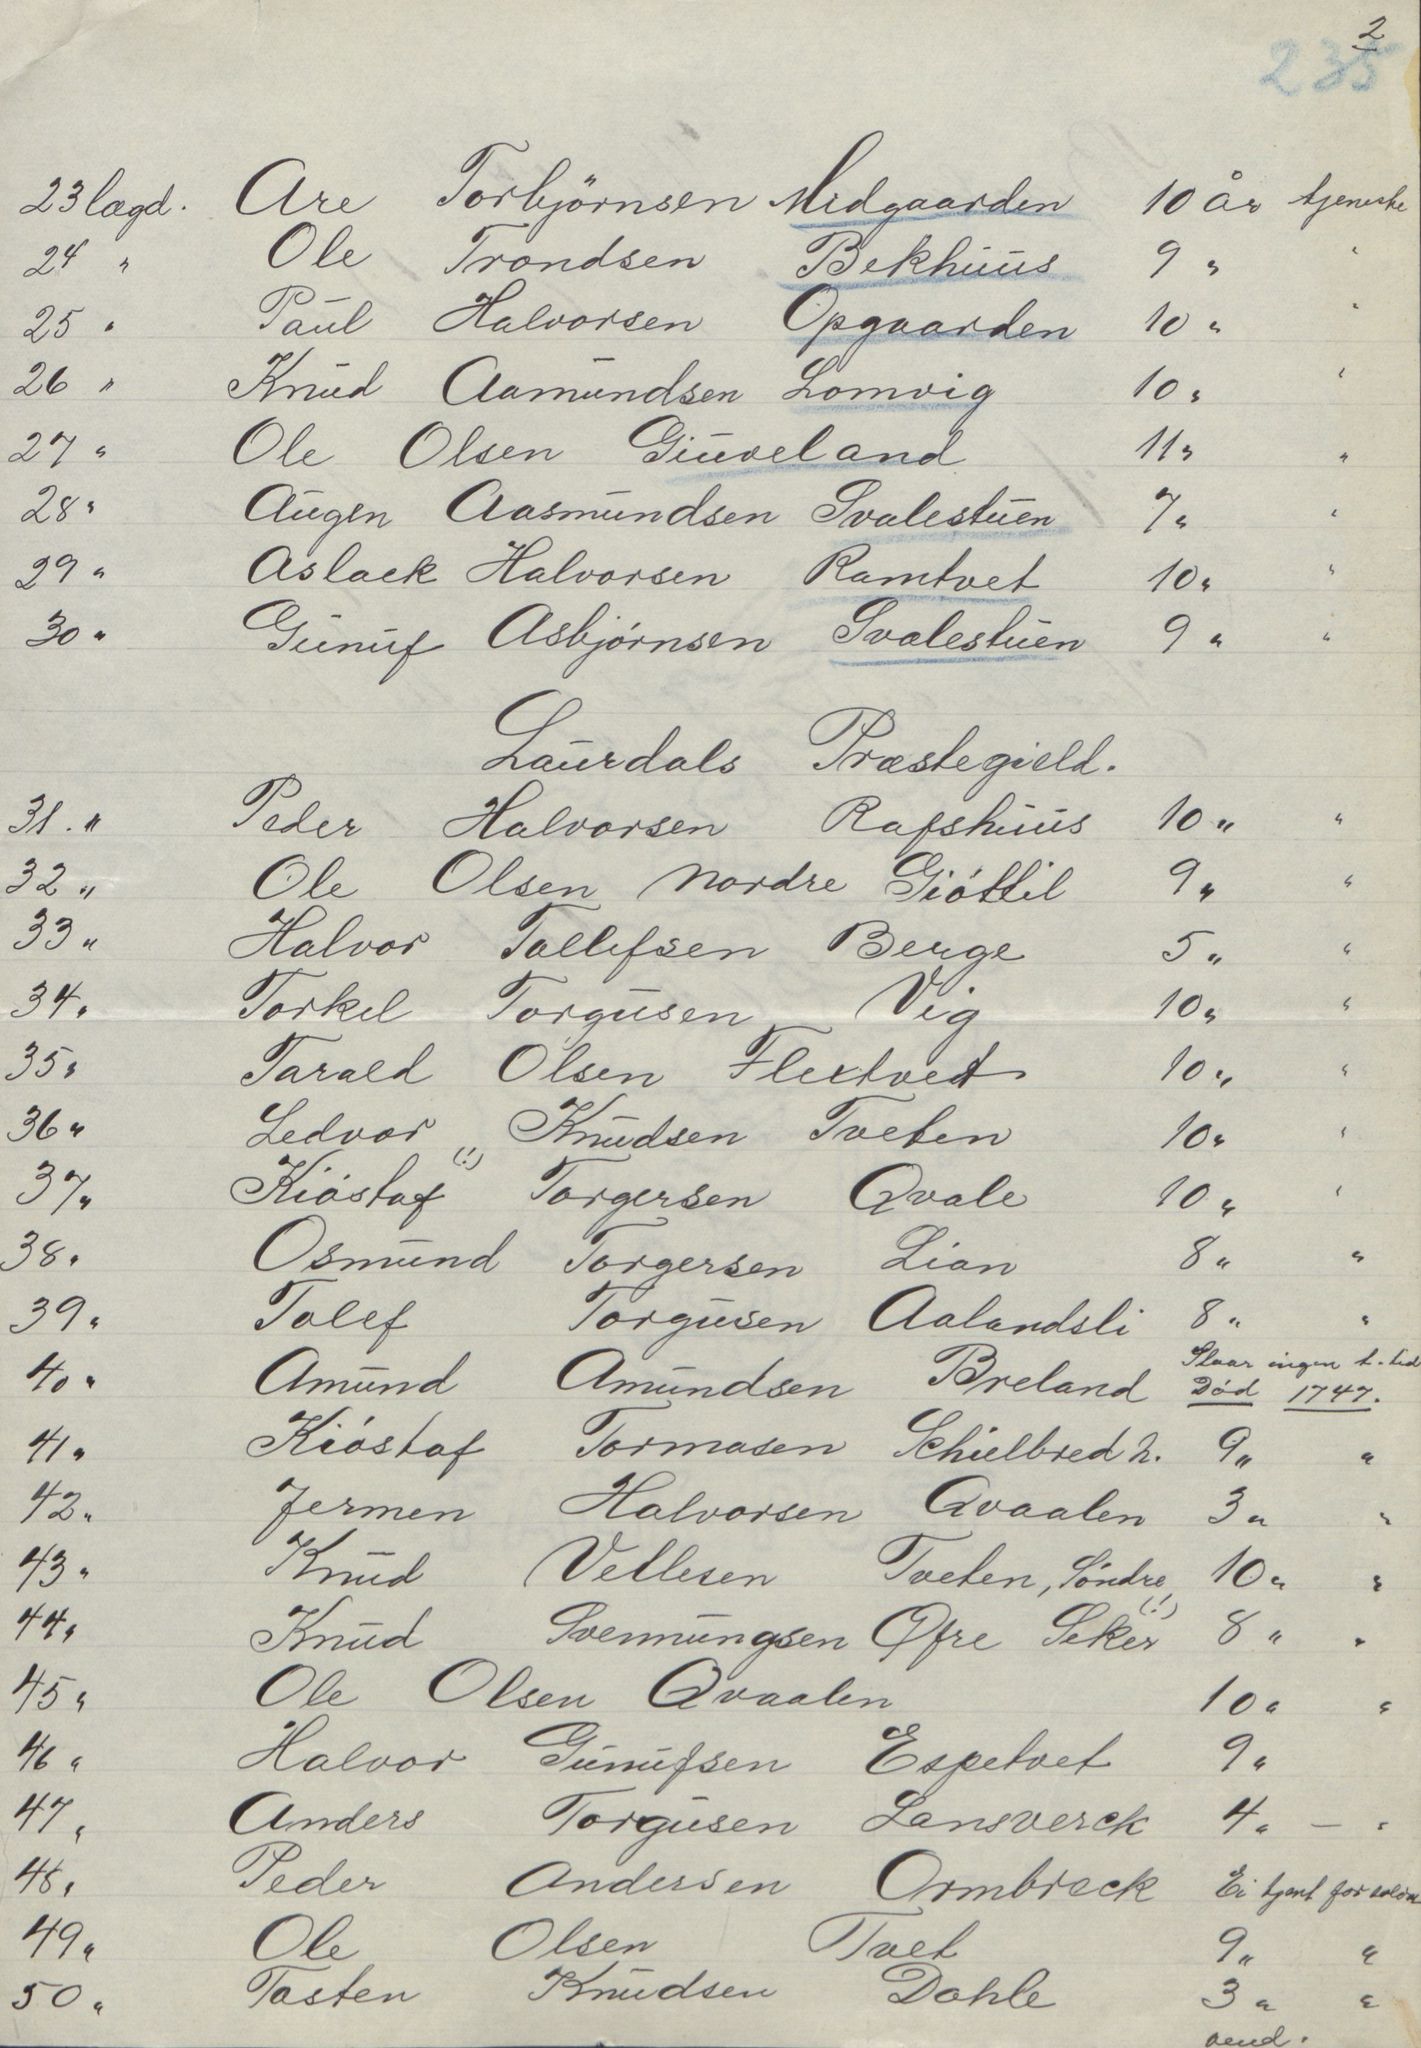 2
235
23 lægd. Are Torbjörnsen Midgaarden 10 år tjeneste
24 " Ole Trondsen Bekhuus 9 " "
25 " Paul Halvorsen Opgaarden 10 " "
26 " Knud Aamundsen Lomvig 10 " "
27 " Ole Olsen Giuveland 11 " "
28 " Augen Aasmundsen Svalestuen 7 " "
29 " Aslack Halvorsen Ramtvet 10 " "
30 " Gunuf Asbjórnsen Svalestuen 9 " "
Laurdals Præstegield.
31. " Peder Halvorsen Rafshuus 10 " "
32 " Ole Olsen Nordre Gióttil 9 " "
33 " Halvor Tollefsen Berge 5 " "
34 " Torkel Torgusen Vig 10 " "
35 " Tarald Olsen Flextvedt 10 " "
36 " Ledvor Knudsen Tveten 10 " "
37 " Kióstaf (!) Torgersen Qvale 10 " "
38 " Osmund Torgersen Lian 8 " "
39 " Tolef Torgusen Aalandsli 8 " "
40 " Amund Amundsen Breland Staar ingen t. tid
Død 1747.
41 " Kióstaf Tormosen Schielbred n. 9 " "
42 " Jermen Halvorsen Qvaalen 3 " "
43 " Knud Vetlesen Tveten, Söndre, 10 " "
44 " Knud Svennungsen Øfre Seker (!) 8 " "
45 " Ole Olsen Qvaalen 10 " "
46 " Halvor Gunufsen Espetvet 9 "
47 " Anders Torgusen Lansverck 4 " — "
48 " Peder Andersen Ormbreck Ei tjent for
49 " Ole Olsen Tvet 9 " "
50 " Tosten Knudsen Dahle 3 " "
vend.